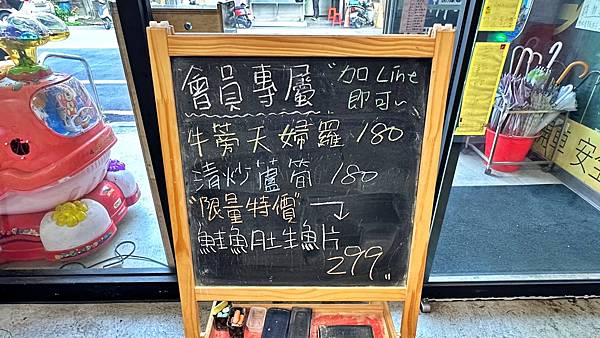 會員專屬 "加Line
即可~
牛蒡天婦羅 180
清炒蘆筍 180
"限量特價"
鮭魚肚生魚片
299"
安全